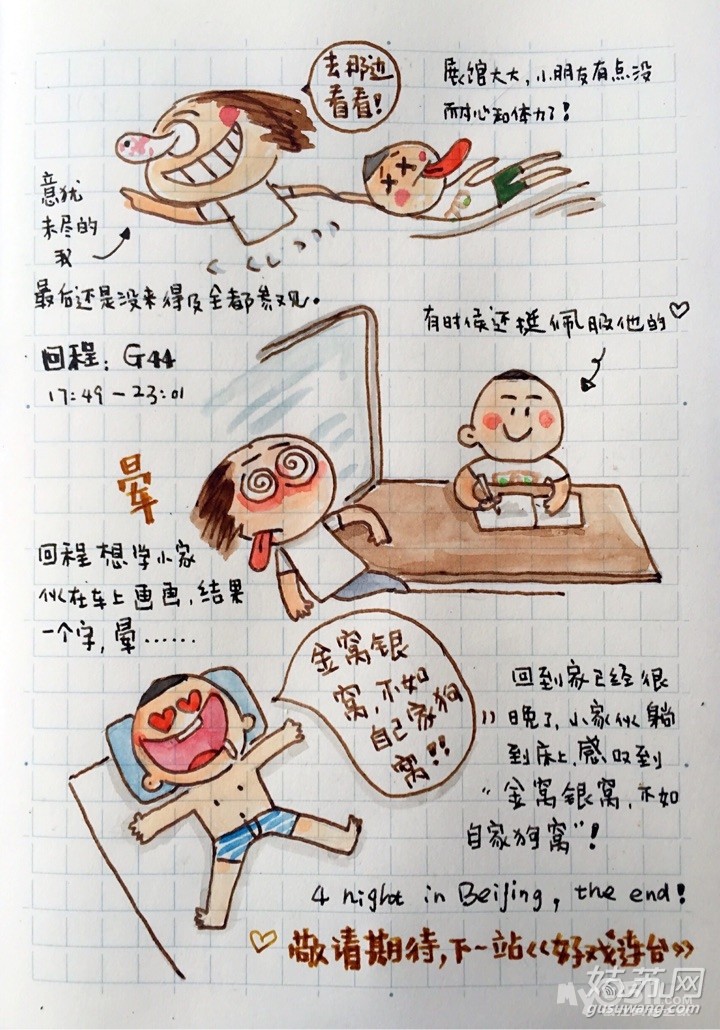 去那边
看看!
展馆太大,小朋友有点没
耐心和体力了!
意犹
未尽的
我
最后还是没来得及全都参观。
有时候还挺佩服他的♡
回程:G44
17:49-23:01
晕
回程想学小家
伙在车上画画,结果
一个字,晕……
金窝银
窝,不如
自己家狗
窝!!
回到家已经很
晚了,小家伙躺
到床上,感叹到
“金窝银窝,不如
自家狗窝”!
4 night in Beijing, the end!
♡敬请期待,下一站《好戏连台》
姑苏网
gusuwang.com